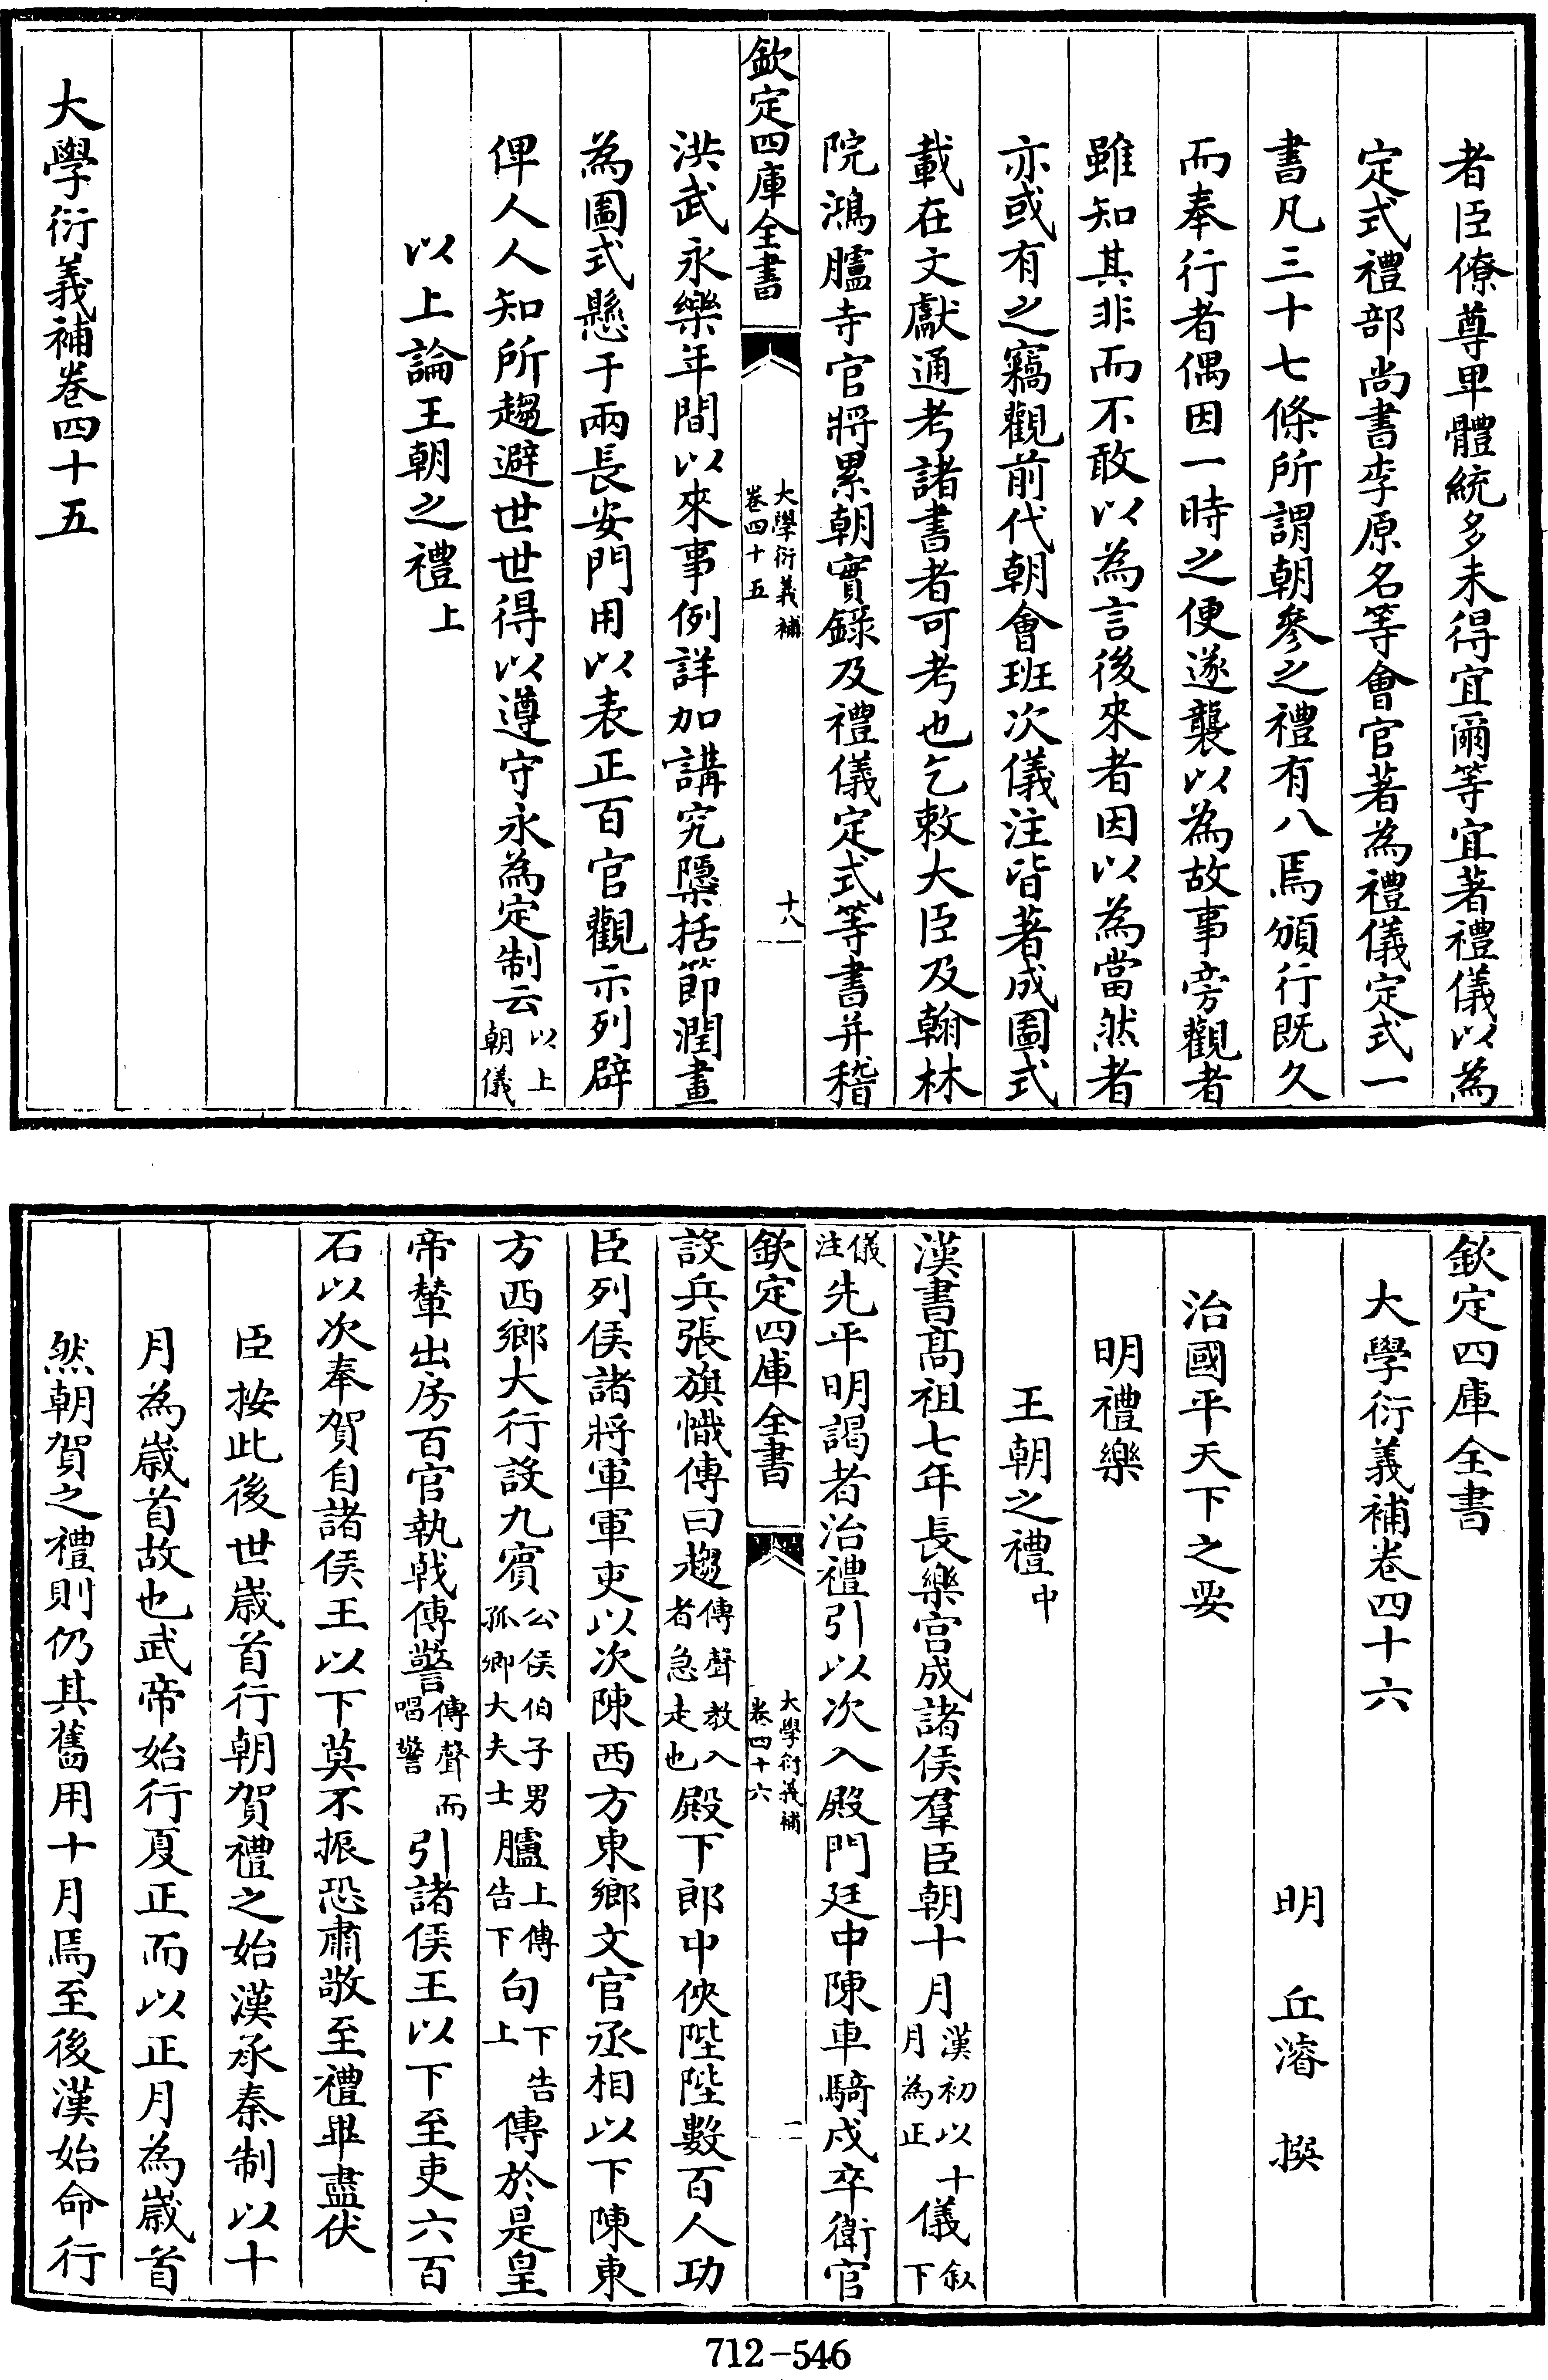 者臣僚尊卑體統多未得宜爾等宜著禮儀以為
定式禮部尚書李原名等會官著為禮儀定式一
書凡三十七條所謂朝參之禮有八焉頒行既久
而奉行者偶因一時之便遂襲以為故事旁觀者
雖知其非而不敢以為言後來者因以為當然者
亦或有之竊觀前代朝會班次儀注皆著成圖式
載在文獻通考諸書者可考也乞敕大臣及翰林
院鴻臚寺官將累朝實錄及禮儀定式等書并稽
欽定四庫全書
大學衍義補
卷四十五
十八
洪武永樂年間以來事例詳加講究隱櫽括節潤畫
為圖式懸于兩長安門用以表正百官觀示列辟
俾人人知所趨避世世得以遵守永為定制云以上
朝儀
以上論王朝之禮上
大學衍義補卷四十五
欽定四庫全書
大學衍義補卷四十六
明 丘濬 撰
治國平天下之要
明禮樂
王朝之禮中
漢書高祖七年長樂宮成諸侯羣臣朝十月漢初以十
月為正儀敘
下
儀
注先平明謁者治禮引以次入殿門廷中陳車騎戍卒衛官
欽定四庫全書
大學衍義補
卷四十六
二
設兵張旗幟傳曰趨傳聲教入
者急走也殿下郎中俠陛陛數百人功
臣列侯諸將軍軍吏以次陳西方東鄉文官丞相以下陳東
方西鄉大行設九賓公侯伯子男
孤卿大夫士臚上傳
告下句下告
上傳於是皇
帝輦出房百官執戟傳警傳聲而
唱警引諸侯王以下至吏六百
石以次奉賀自諸侯王以下莫不振恐肅敬至禮畢盡伏
臣按此後世歲首行朝賀禮之始漢承秦制以十
月為歲首故也武帝始行夏正而以正月為歲首
然朝賀之禮則仍其舊用十月焉至後漢始命行
712-546